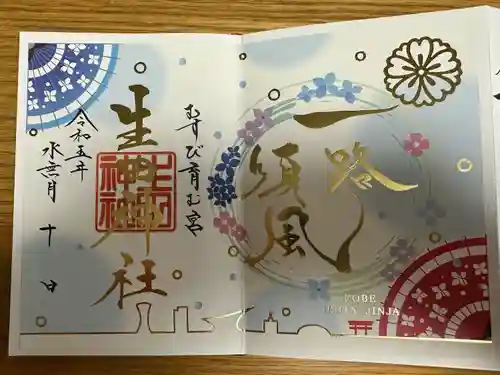 一路
順風
KOBE
IKUTA JINJA
むすび育む宮
生田神社
令和五年
水無月 十 日